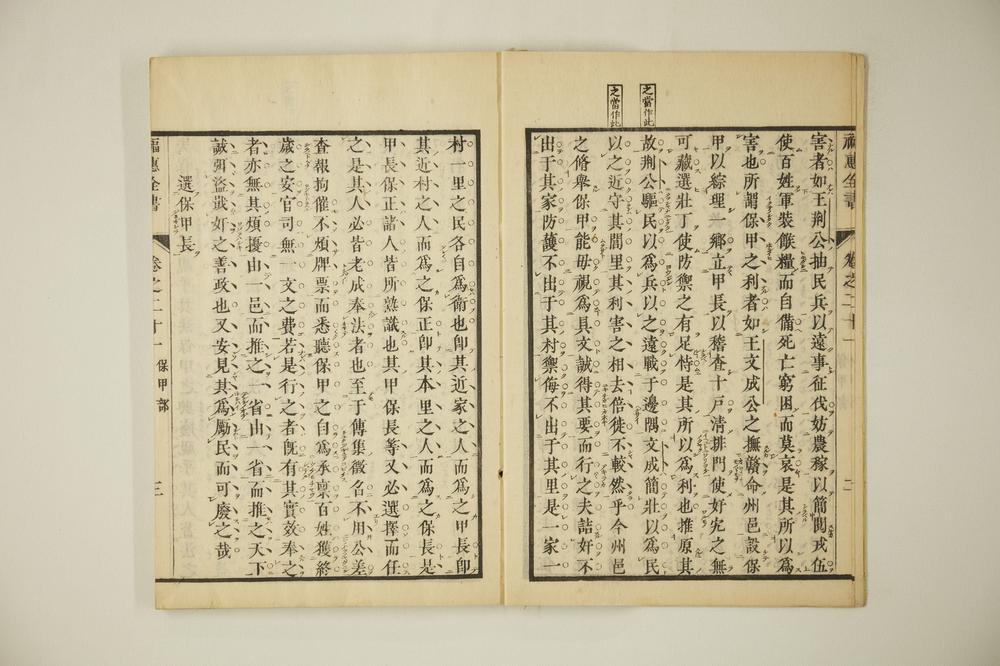 之當作此
之當作此
福惠全書 卷之二十一 二
害者如王荆公抽民兵以遠事征伐妨農稼以簡閲戎伍
使百姓軍裝餱糧而自備死亡窮困而莫哀是其所以爲
害也所謂保甲之利者如王文成公之撫贛命州邑設保
甲以綜理一鄉立甲長以稽查十戸清排門使奸宄之無
可藏選壯丁使防禦之有足恃是其所以爲利也推原其
故荆公驅民以爲兵以之遠戰于邊隅文成簡壯以爲民
以之近守其閭里其利害之相去倍徙不較然乎今州邑
之脩舉保甲能毋視爲具文誠得其要而行之夫詰奸不
出于其家防護不出于其村禦侮不出于其里是一家一
村一里之民各自爲衛也卽其近家之人而爲之甲長卽
其近村之人而爲之保正卽其本里之人而爲之保長是
甲長保正諸人皆所熟識也其甲保長等又必選擇而任
之是其人必皆老成奉法者也至于傳集徵名不用公差
査報拘催不煩牌票而悉聽保甲之自爲承禀百姓獲終
歳之安官司無一文之費若是行之者旣有其實效奉之
者亦無其煩擾由一邑而推之一省由一省而推之天下
誠弭盜戢奸之善政也又安見其爲厲民而可廢之哉
選保甲長
福惠全書 卷之二十一 保甲部 三